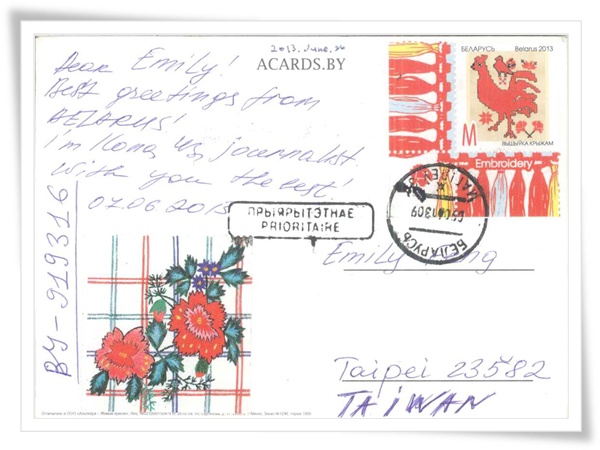 2013. June.
ACARDS.BY
БЕЛАРУСЬ Belarus 2013
M
ВЫШЫЎКА КРЫЖАМ
Embroidery
Dear Emily!
Best greetings from
BELARUS!
I'm Ilona, journalist.
Wish you the best!
07.06 2013
BY-919316
ПРЫЯРЫТЭТНАЕ
PRIORITAIRE
БЕЛАРУСЬ
Emily
Taipei 23582
TAIWAN